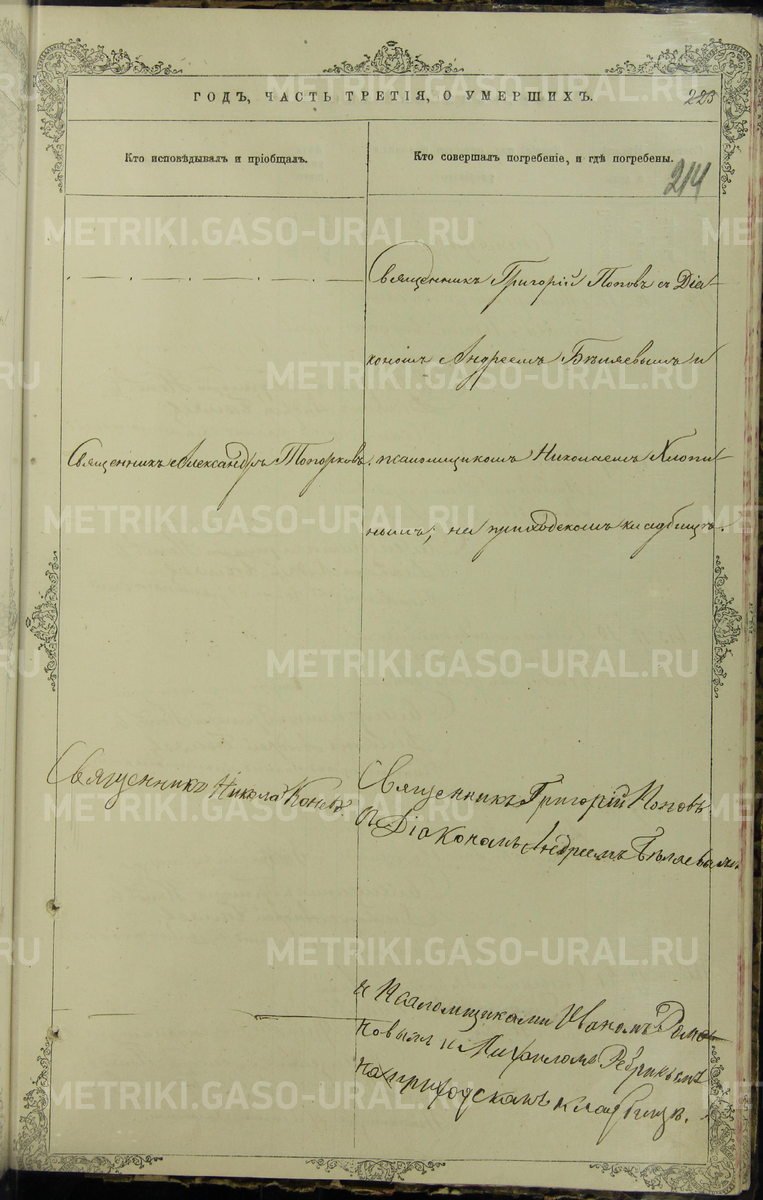 ГОДЪ, ЧАСТЬ ТРЕТІЯ, О УМЕРШИХЪ.
223
Кто исповѣдывалъ и пріобщалъ.
Кто совершалъ погребеніе, и гдѣ погребены.
214
Священникъ Григорій Поповъ съ Діа-
кономъ Андреемъ Бѣляевымъ и
Священникъ Александръ Топорковъ.
псаломщикомъ Николаемъ Хлопи-
нымъ, на приходскомъ кладбищѣ.
Священникъ Никола Коневъ.
Священникъ Григорій Поповъ
съ Діакономъ Андреемъ Бѣляевымъ
и Псаломщиками Иваномъ Рома-
новым и Михаилом
на приходскамъ кладбищѣ.
METRIKI.GASO-URAL.RU